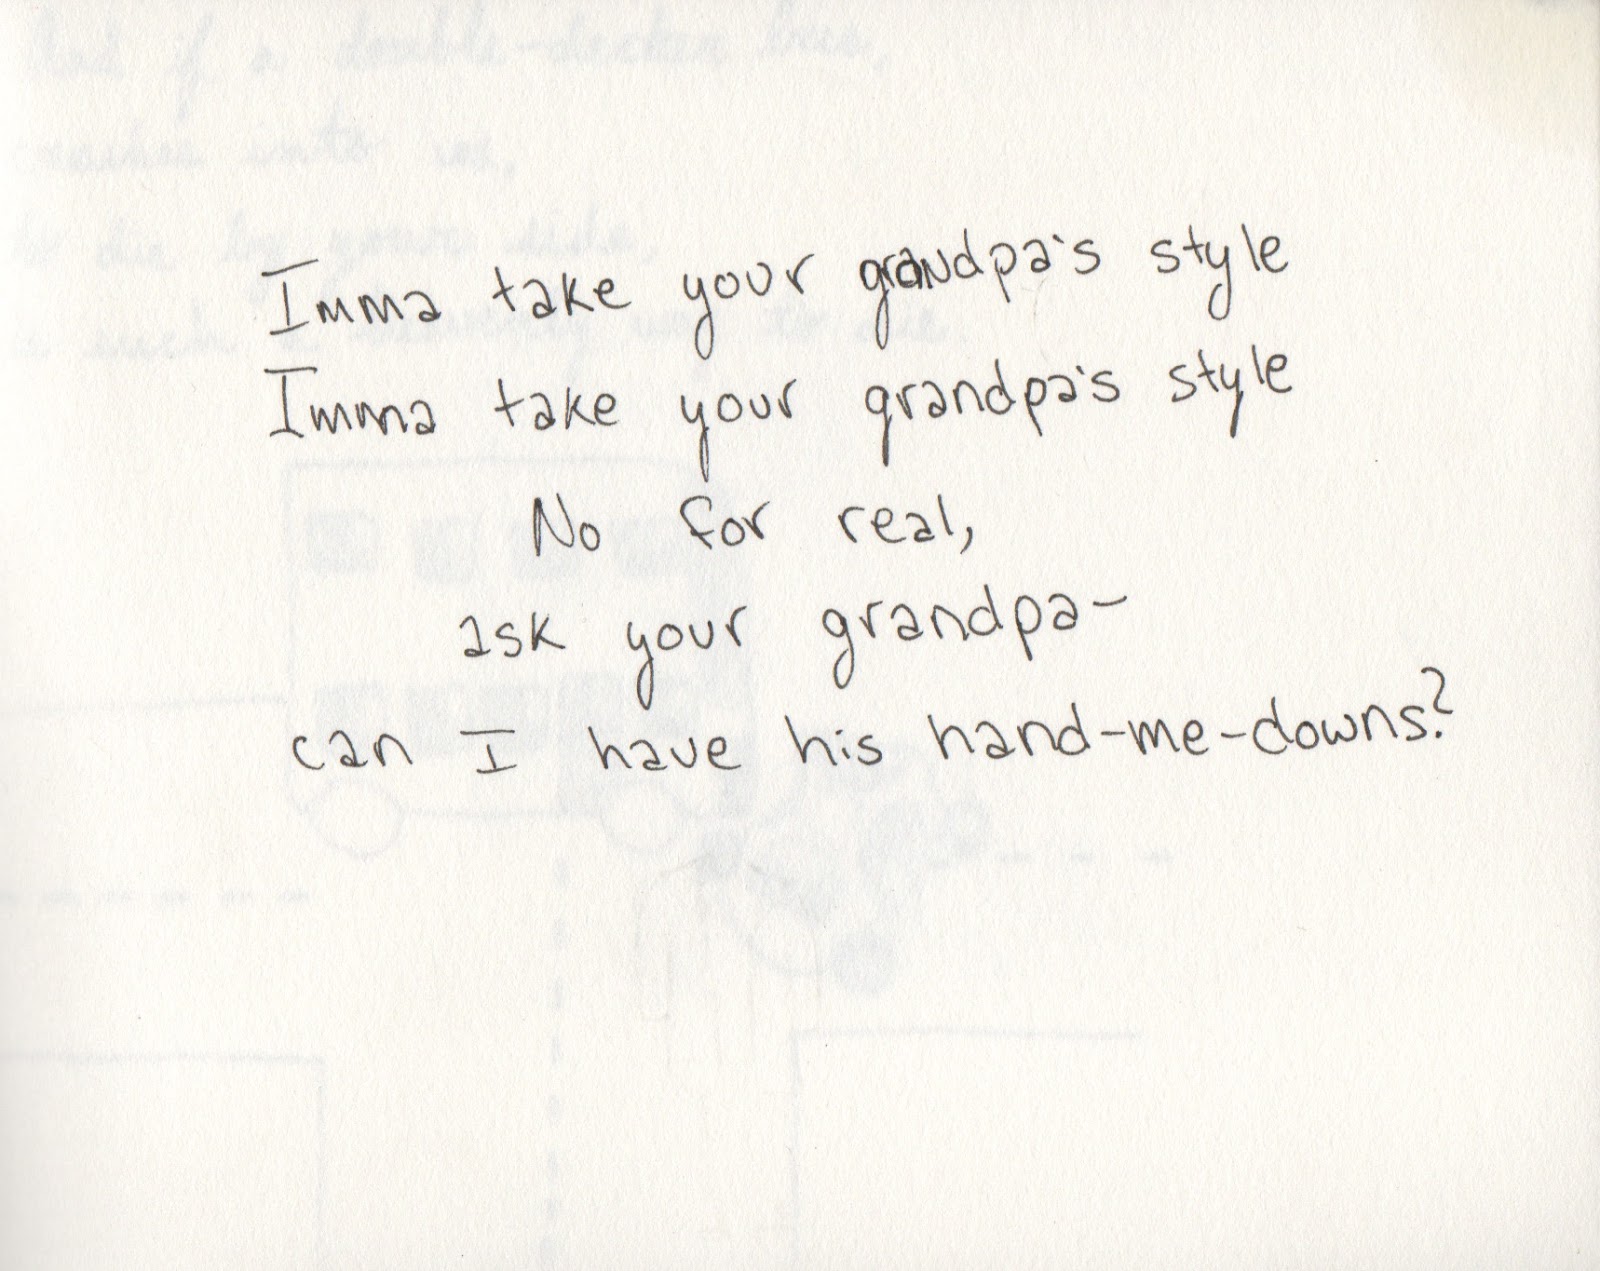 Imma take your grandpa's style
Imma take your grandpa's style
No for real,
ask your grandpa-
can I have his hand-me-downs?